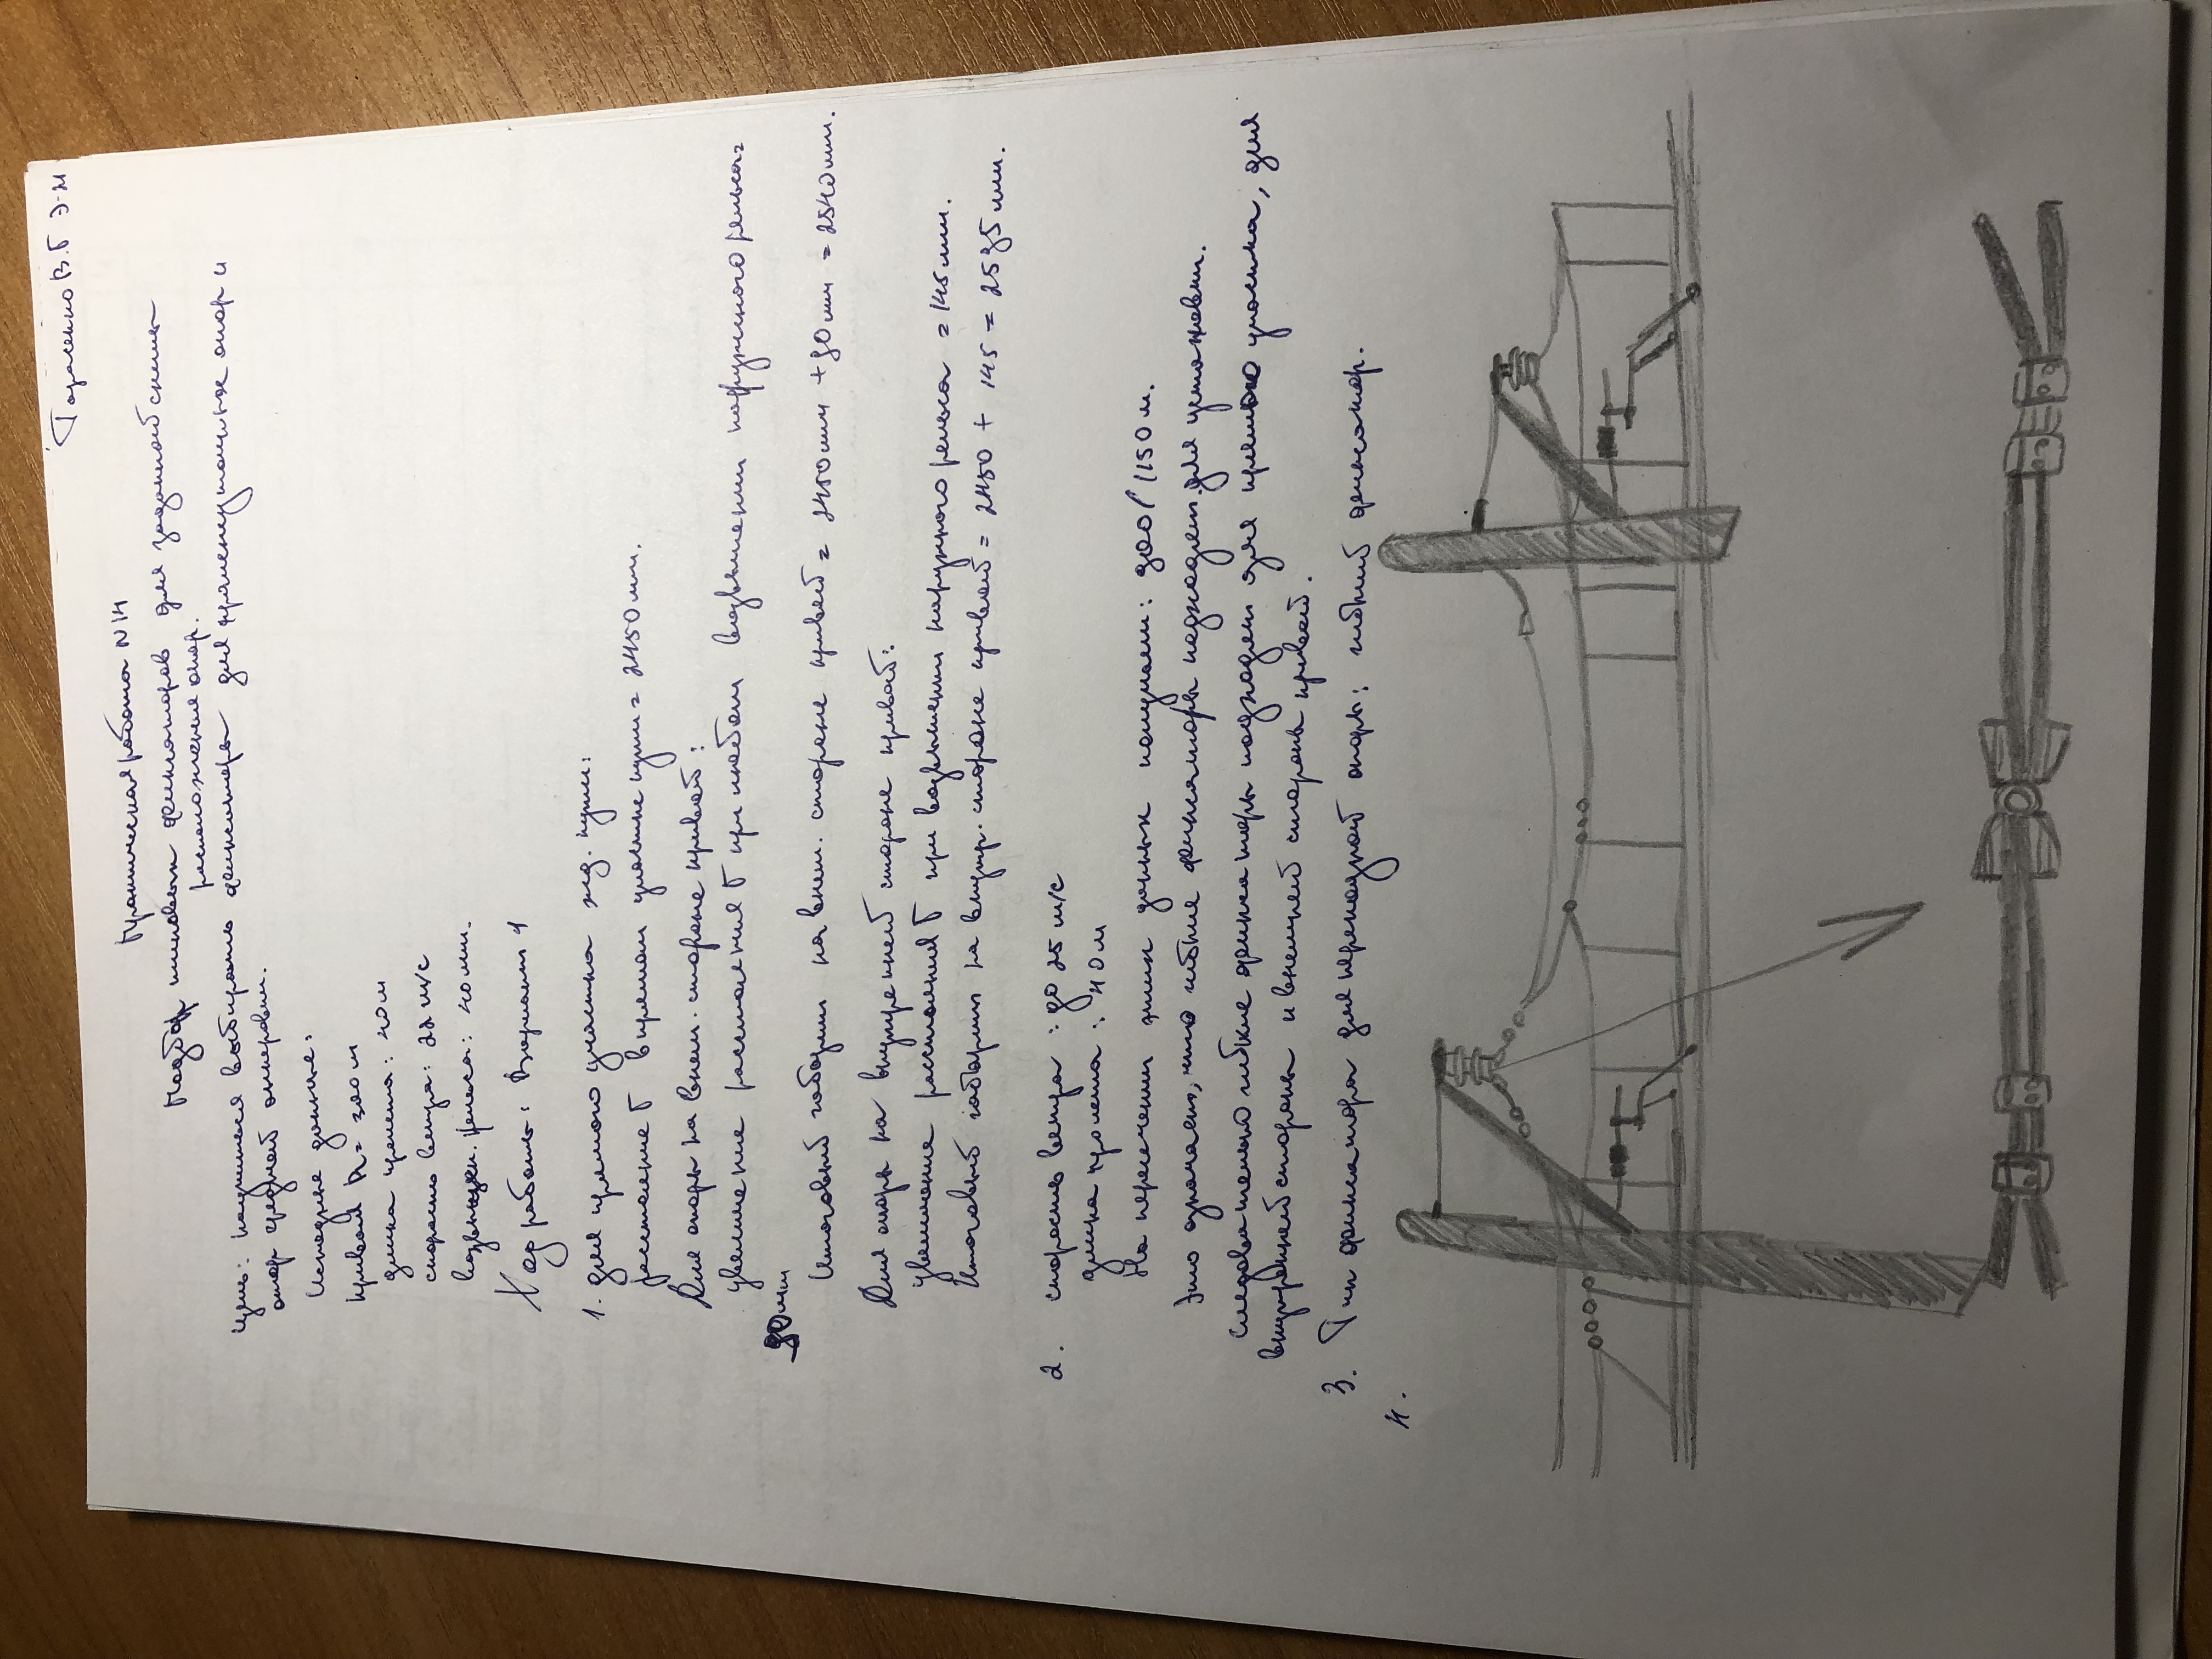 Тарасенко В.Г Э-21
Практическая работа N14
Подбор типовых фиксаторов для заданной схемы
расположения опор.
Цель: научится выбирать фиксаторы для промежуточных опор и
опор средней анкеровки.
Исходные данные:
кривой R = 300 м
длина пролета: 40 м
скорость ветра: 22 м/с
возвышен. рельса: 40 мм.
Ход работы: Вариант 1
1. Для прямого участка жд. пути:
расстояние Г в прямом участке пути = 2450 мм.
Для опоры на внеш. стороне кривой:
увеличение расстояния Г при любом возвышении наружного рельса =
90мм
Итоговый габарит на внеш. стороне кривой = 2450мм + 90мм = 2540мм.
Для опоры на внутренней стороне кривой:
увеличение расстояния Г при возвышении наружного рельса = 145мм.
Итоговый габарит на внутр. стороне кривой = 2450 + 145 = 2595 мм.
2. скорость ветра: до 25 м/с
длина пролета: 40 м
На пересечении этих данных получаем: 300/1150 м.
Это означает, что гибкие фиксаторы подходят для установки.
Следовательно гибкие фиксаторы подходят для прямого участка, для
внутренней стороны и внешней стороны кривой.
3. Тип фиксатора для переходной опоры: гибкий фиксатор.
4.